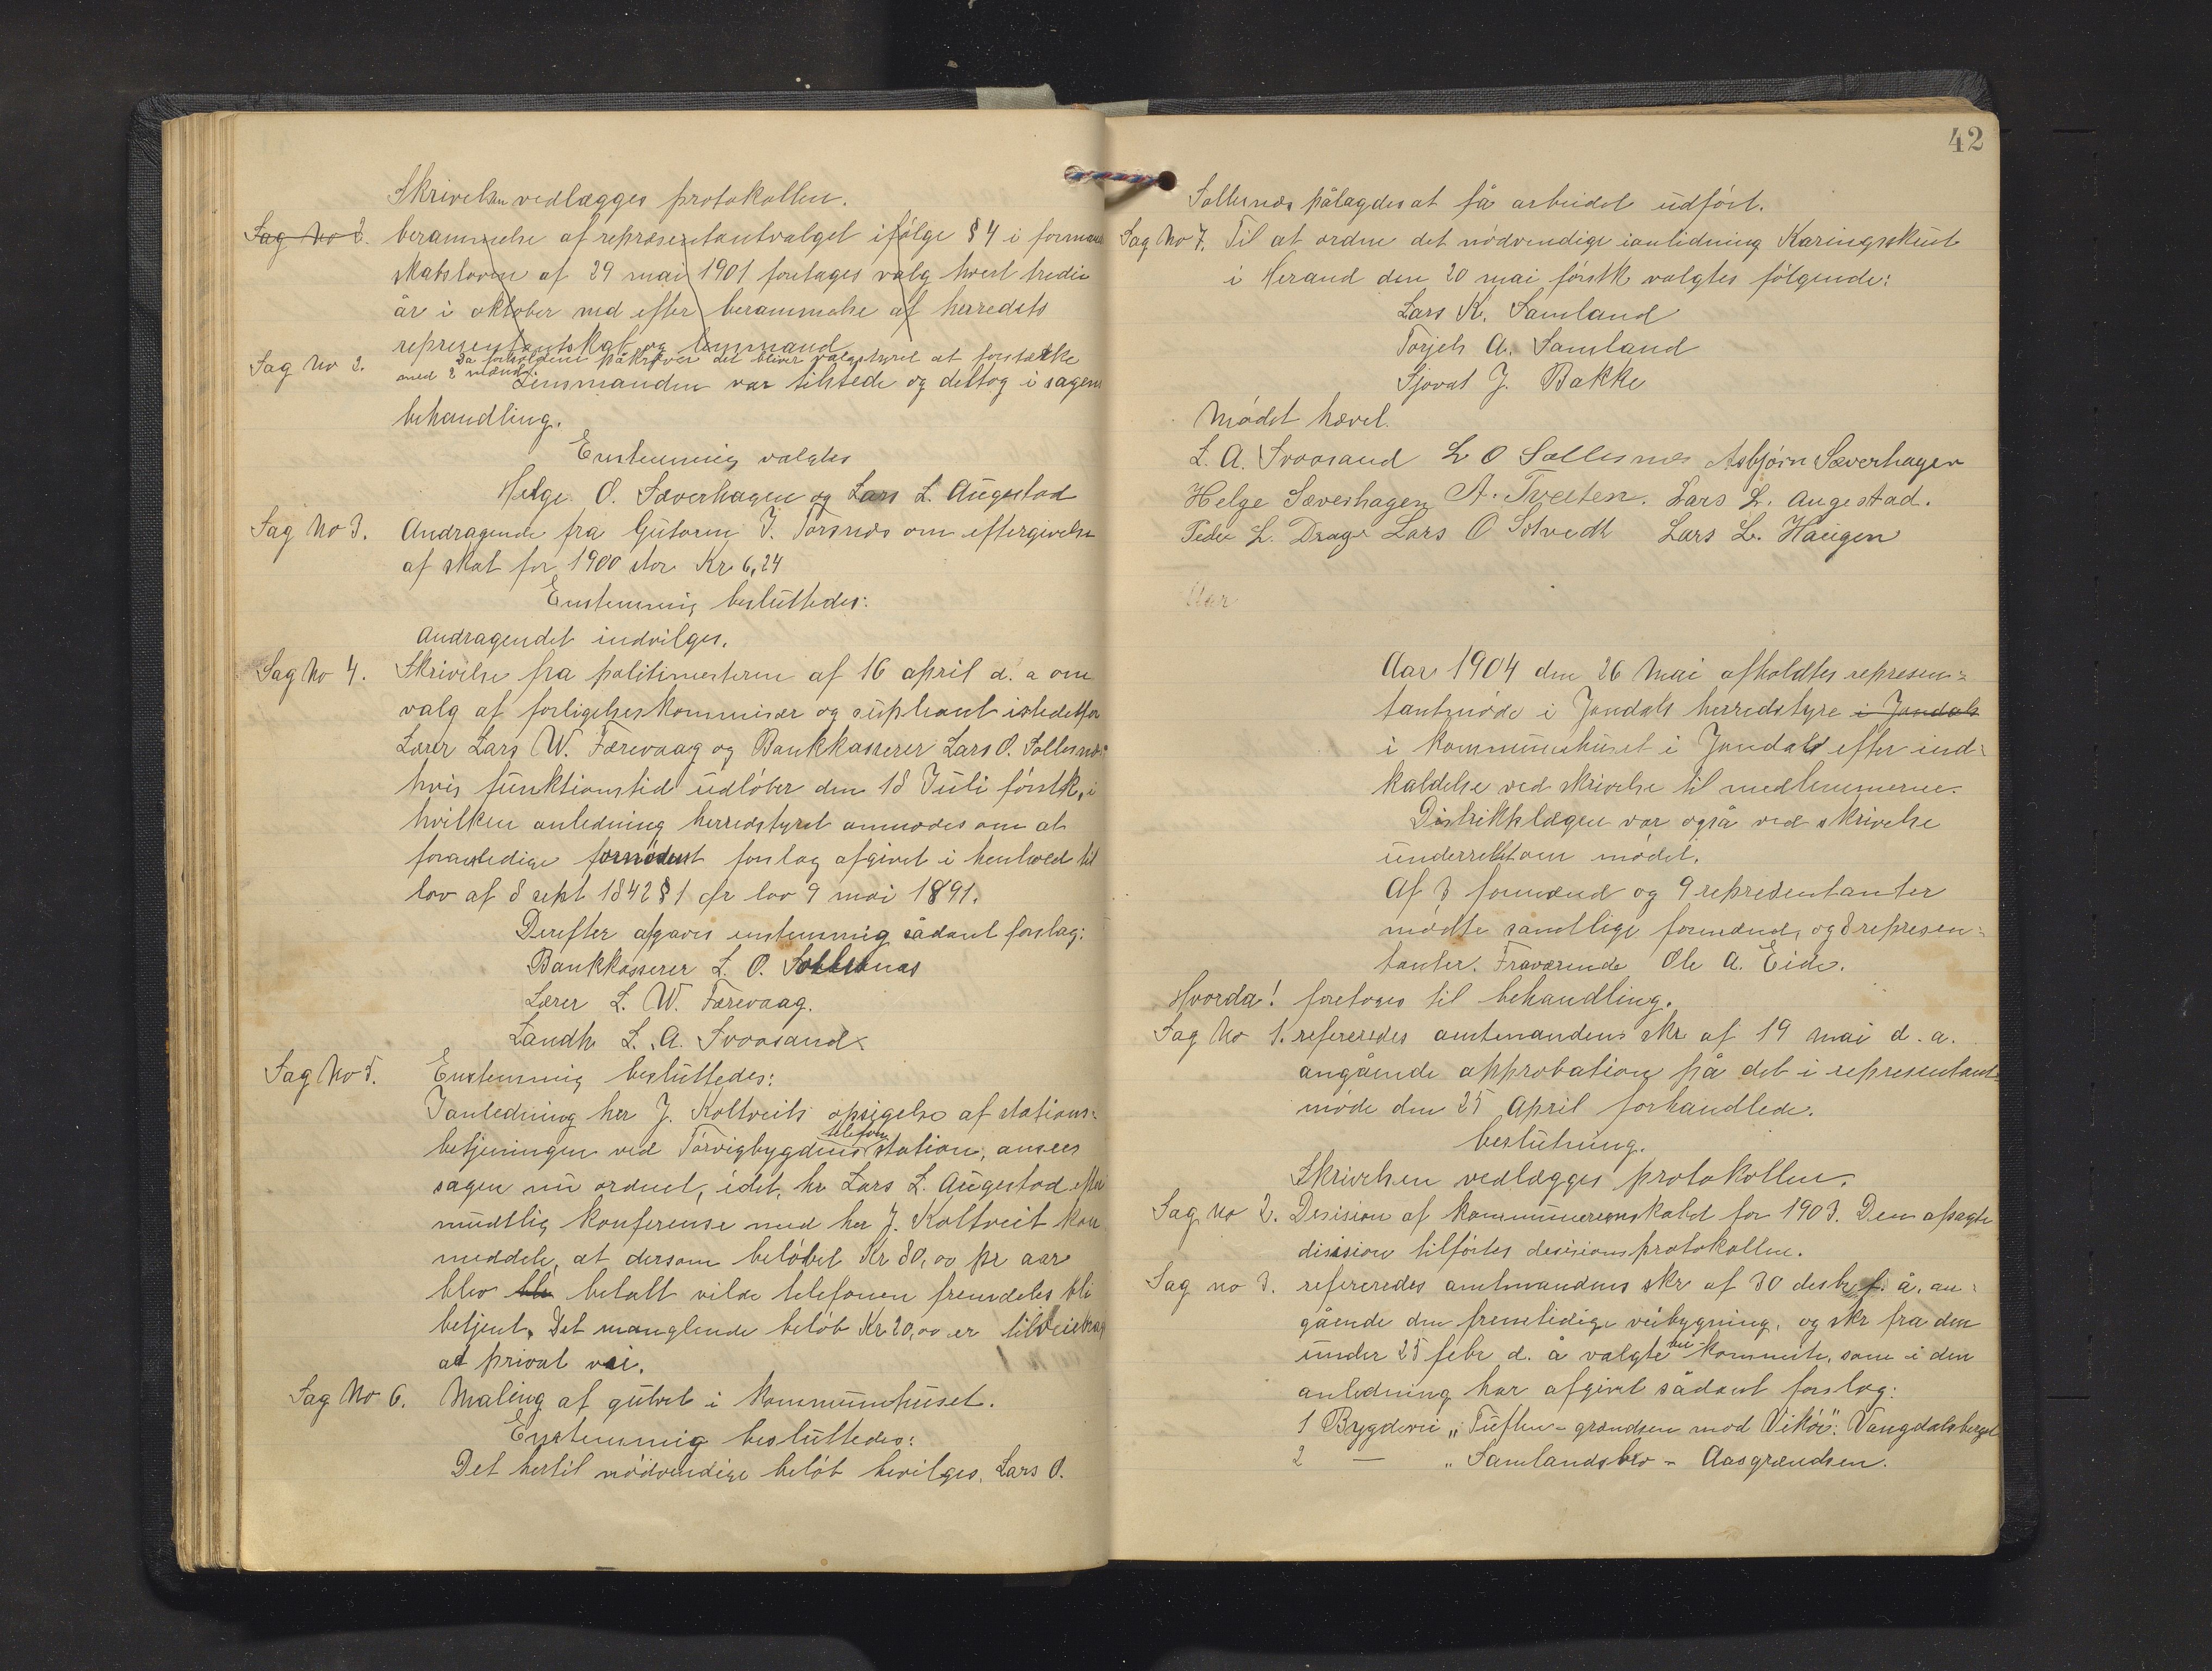 Skrivelsen vedlægges protokollen.
Sag No 2. berammelse af repræsentantvalget ifølge § 4 i formand
skabsloven af 29 mai 1901 foretages valg hvert tredie
år i oktober med efter berammelse af herredets
representantskab og lensmand
Sag No 2. Da forholdene påkræver det bliver valgstyret at forstærke
med 2 mænd. Linsmanden var tilstede og deltog i sagens
behandling.
Enstemmig valgtes
Helge O. Sæverhagen og Lars L. Augestad
Sag No 3. Andragende fra Gutorm J. Torsnes om eftergivelse
af skat for 1900 stor Kr 6,24
Enstemmig besluttedes:
Andragendet indvilges.
Sag No 4. Skrivelse fra politimesteren af 16 april d. a om
valg af forligelseskommisær og supleant istedetfor
Lærer Lars W. Færevaag og Bankkasserer Lars O. Sollesnes
hvis funktionstid udløber den 18 Juli førstk, i
hvilken anledning herredstyret anmodes om at
foranledige fornødent forslag afgivet i henhold til
lov af 8 sept 1842 § 1 cfr lov 9 mai 1891.
Derefter afgaves enstemmig sådant forslag:
Bankkasserer L. O. Sollesnes
Lærer L. W. Færevaag.
Landh L. A. Svaasand
Sag No 5. Enstemmig besluttedes:
I anledning her J. Koltveits opsigelse af stations-
betjeningen ved Tørvigbygdens telefon station, ansees
sagen nu ordnet, idet, hr Lars L. Augestad efter
mudtlig konferense med her J. Koltveit kan
meddele, at dersom beløbet Kr 80,00 pr aar
blev bli betalt vilde telefonen fremdeles bli
betjent. Det manglende beløb Kr 20,00 er tilveiebragt
ad privat vei.
Sag No 6. Maling af gulvet i kommunehuset.
Enstemmig besluttedes:
Det hertil nødvendige beløb bevilges, Lars O.
42
Sollesnes pålagdes at få arbeidet udført.
Sag No 7. Til at ordne det nødvendige ianlidning Karingsskuet
i Herand den 20 mai førstk valgtes følgende:
Lars K. Samland
Torjels A. Samland
Sjovat J. Bakke
Mødet hævet.
L. A. Svaasand L O Sollesnes Asbjørn Sæverhagen
Helge Sæverhagen A. Tveiten. Lars L. Augestad.
Peder L. Drage Lars O Solvedt Lars L. Haugen
Aar
Aar 1904 den 26 Mai afholdtes represen-
tantmøde i Jondals herredstyre i Jondals
i kommunehuset i Jondal efter ind-
kaldelse ved skrivelse til medlemmerne.
Distriktslægen var også ved skrivelse
underrettet om mødet.
Af 3 formænd og 9 representanter
mødte samtlige formænd, og 8 represen-
tanter. Fraværende Ole A. Eide.
Hvorda! foretoges til behandling.
Sag No 1. refereredes amtmandens skr af 19 mai d. a.
angående approbation på det i representant-
møde den 25 April forhandlede.
beslutning.
Skrivelsen vedlægges protokollen.
Sag No 2. Desision af kommuneregnskabet for 1903. Den afsagte
disision tilførtes desisionsprotokollen.
Sag no 3. refereredes amtmandens skr af 30 desbr f. å. an-
gående den fremtidige veibygning, og skr fra den
under 25 febr d. å valgte vei-komite, som i den
anledning har afgivet sådant forslag:
1 Bygdevei „Tuften - grændsen mod Vikør": Vangdalsberget
2 — „ Samlandsbro - Aasgrændsen.